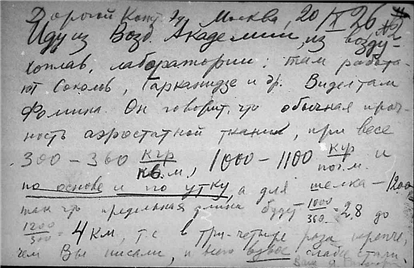 Дорогой Конст. Эд. Москва, 20/X 26
Иду из Возд. Академии, из возду-
хоплав. лаборатории; там работа-
ют Соколов, Гаркалидзе и др. Видел там
Фомина. Он говорит, что обычная проч-
ность аэростатной ткани, при весе
300-360 кгр/кв.м, 1000-1100 кгр/пог.м. и
по основе и по утку, а для шелка - 1200
так что предельная длина будет 1000/360 = 2,8 до
1200/300 = 4 км, т.е. в три-четыре раза короче,
чем Вы писали, и всего вдвое слабее стали.